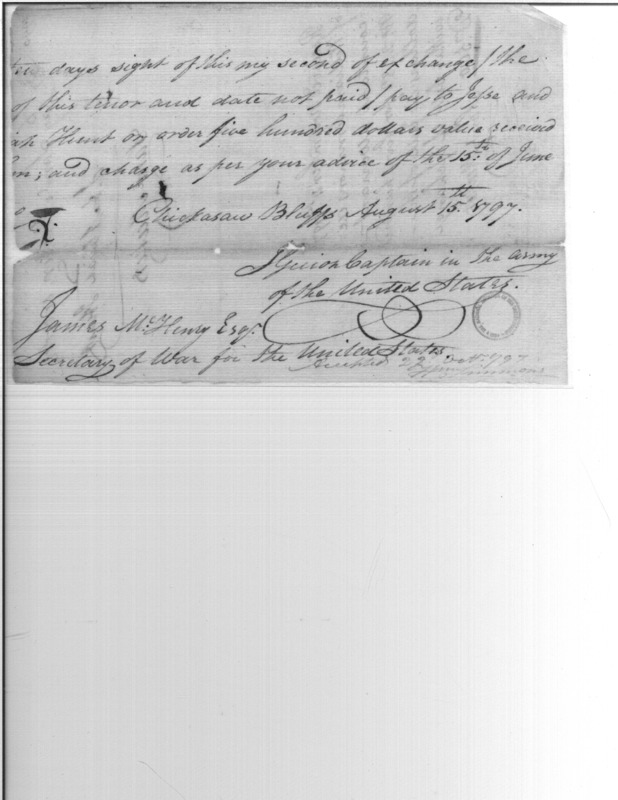 ten days sight of this my second of exchange / the
of this tenor and date not paid / pay to Jesse and
iah Hunt or order five hundred dollars value received
; and charge as per your advice of the 15th. of June
Chickasaw Bluffs August 15th. 1797.
I Guion Captain in the army
of the United States.
James Mc.Henry Esqr.
Secretary of War for the United States.
accepted 1797